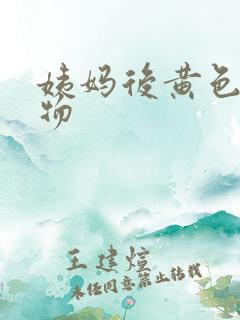 姨妈後黄色
物
王建煊
未经同意禁止转载